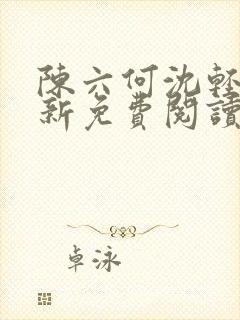 陳六何沈輕
新免費閱讀
卓泳